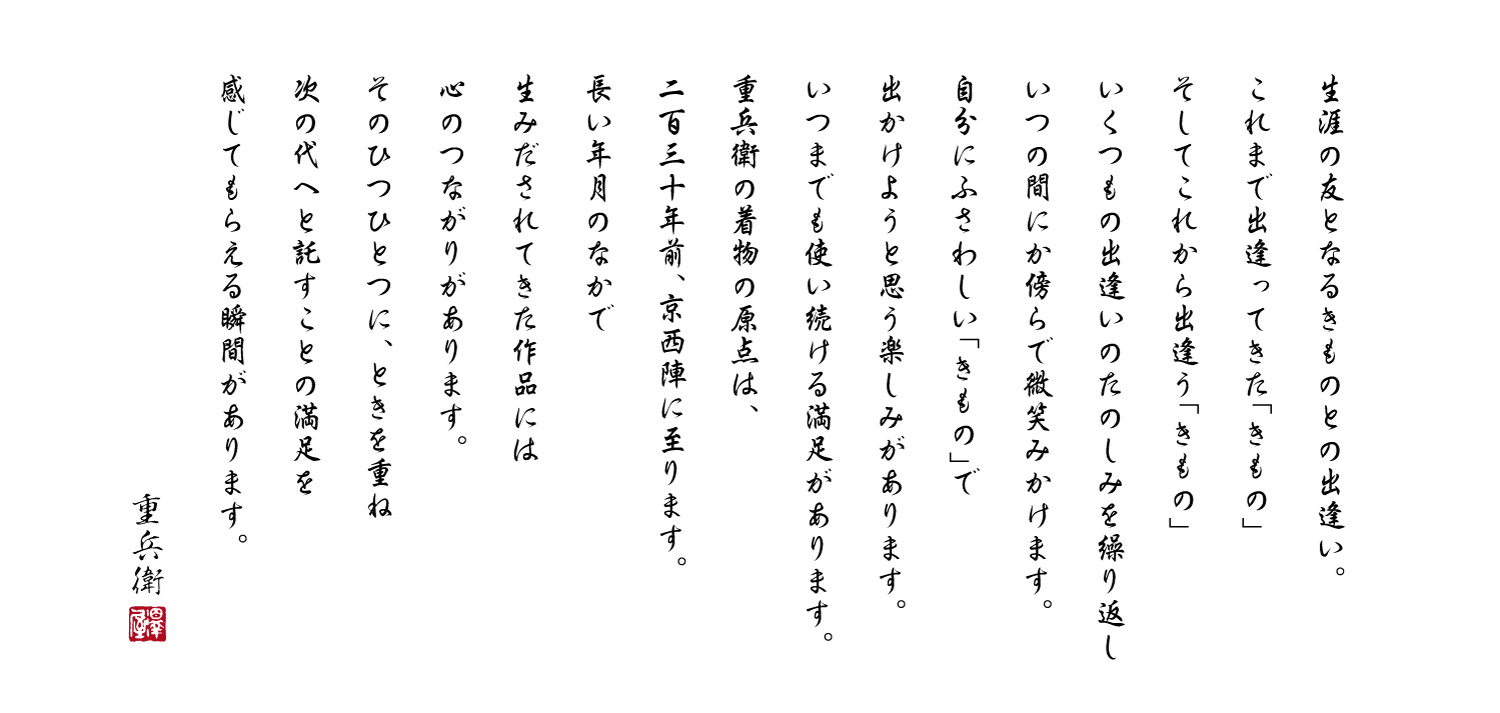 生涯の友となるきものとの出逢い。
これまで出逢ってきた「きもの」
そしてこれから出逢う「きもの」
いくつもの出逢いのたのしみを繰り返し
いつの間にか傍らで微笑みかけます。
自分にふさわしい「きもの」で
出かけようと思う楽しみがあります。
いつまでも使い続ける満足があります。
重兵衛の着物の原点は、
二百三十年前、京西陣に至ります。
長い年月のなかで
生みだされてきた作品には
心のつながりがあります。
そのひつひとつに、ときを重ね
次の代へと託すことの満足を
感じてもらえる瞬間があります。
重兵衛
澤屋